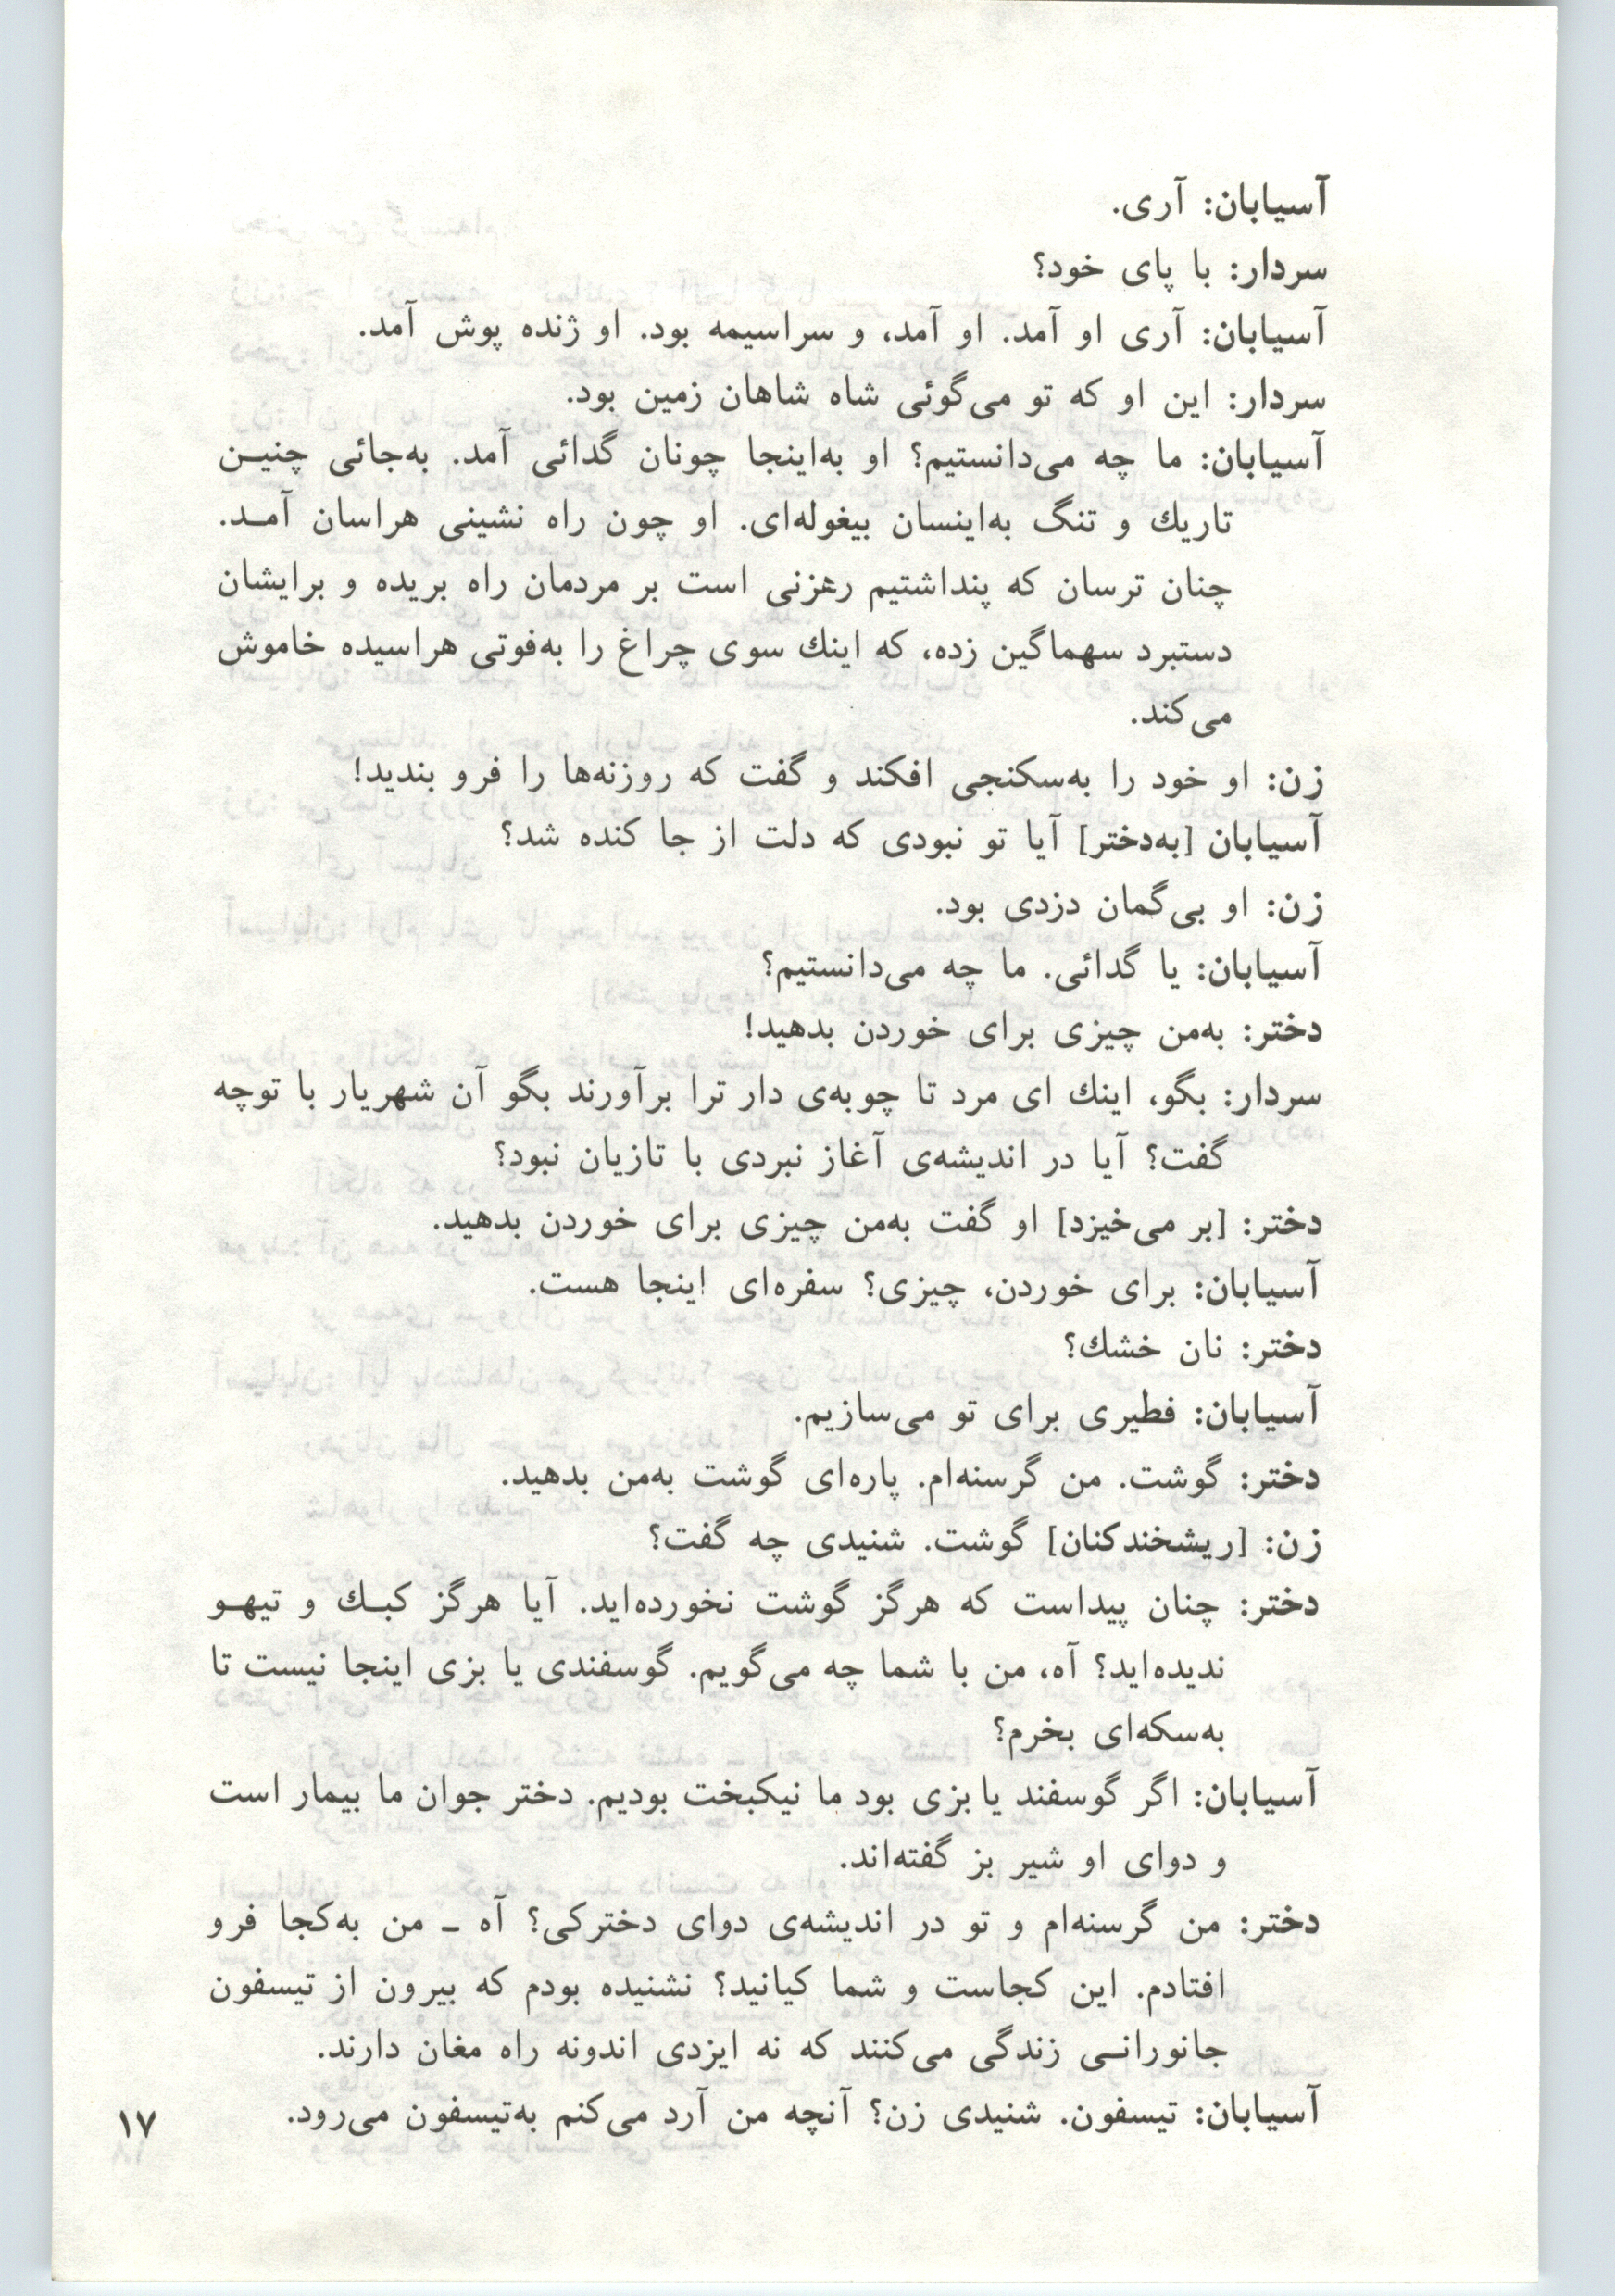 آسیابان: آری.
سردار: با پای خود؟
آسیابان: آری او آمد. او آمد، و سراسیمه بود. او ژنده پوش آمد.
سردار: این او که تو می‌گوئی شاه شاهان زمین بود.
آسیابان: ما چه می‌دانستیم؟ او به‌اینجا چونان گدائی آمد. به‌جائی چنیـن
تاریك و تنگ به‌اینسان بیغوله‌ای. او چون راه نشینی هراسان آمـد.
چنان ترسان که پنداشتیم رهزنی است بر مردمان راه بریده و برایشان
دستبرد سهماگین زده، که اینك سوی چراغ را به‌فوتی هراسیده خاموش
می‌کند.
زن: او خود را به‌سکنجی افکند و گفت که روزنه‌ها را فرو بندید!
آسیابان [به‌دختر] آیا تو نبودی که دلت از جا کنده شد؟
زن: او بی‌گمان دزدی بود.
آسیابان: یا گدائی. ما چه می‌دانستیم؟
دختر: به‌من چیزی برای خوردن بدهید!
سردار: بگو، اینك ای مرد تا چوبه‌ی دار ترا برآورند بگو آن شهریار با توچه
گفت؟ آیا در اندیشه‌ی آغاز نبردی با تازیان نبود؟
دختر: [بر می‌خیزد] او گفت به‌من چیزی برای خوردن بدهید.
آسیابان: برای خوردن، چیزی؟ سفره‌ای اینجا هست.
دختر: نان خشك؟
آسیابان: فطیری برای تو می‌سازیم.
دختر: گوشت. من گرسنه‌ام. پاره‌ای گوشت به‌من بدهید.
زن: [ریشخندکنان] گوشت. شنیدی چه گفت؟
دختر: چنان پیداست که هرگز گوشت نخورده‌اید. آیا هرگز کبـك و تیهـو
ندیده‌اید؟ آه، من با شما چه می‌گویم. گوسفندی یا بزی اینجا نیست تا
به‌سکه‌ای بخرم؟
آسیابان: اگر گوسفند یا بزی بود ما نیکبخت بودیم. دختر جوان ما بیمار است
و دوای او شیر بز گفته‌اند.
دختر: من گرسنه‌ام و تو در اندیشه‌ی دوای دخترکی؟ آه ـ من به‌کجا فرو
افتادم. این کجاست و شما کیانید؟ نشنیده بودم که بیرون از تیسفون
جانورانـی زندگی می‌کنند که نه ایزدی اندونه راه مغان دارند.
آسیابان: تیسفون. شنیدی زن؟ آنچه من آرد می‌کنم به‌تیسفون می‌رود.
۱۷